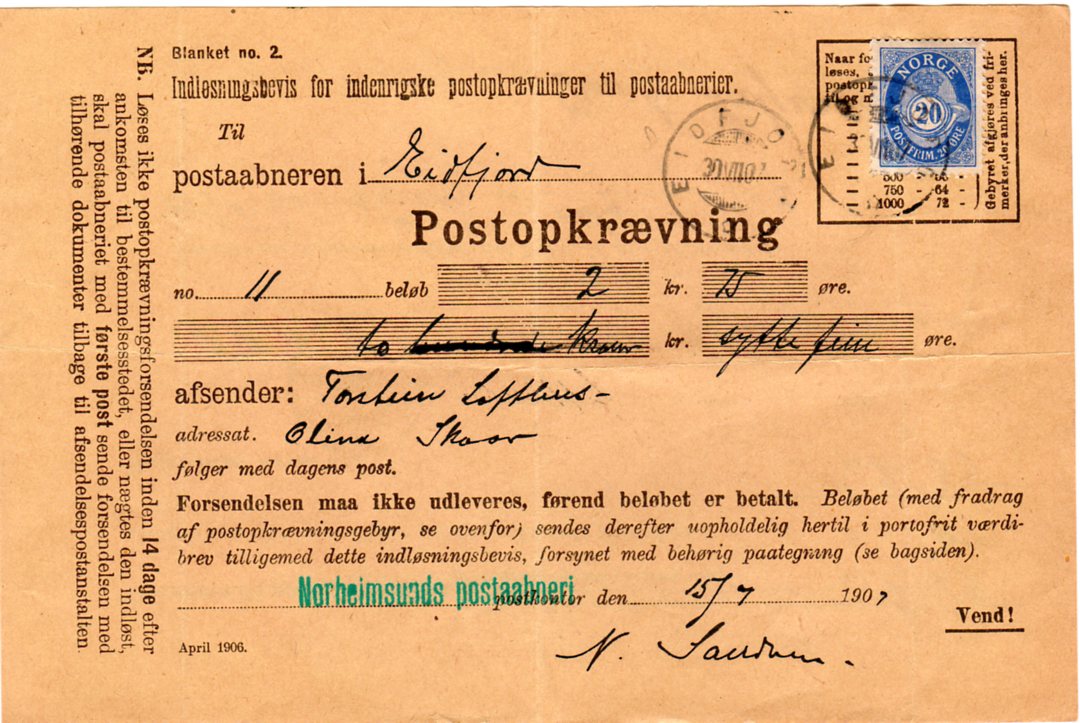 Blanket no. 2.
Indløsningsbevis for indenrigske postopkrævninger til postaabnerier.
Til
postaabneren i Eidfjord
EIDFJORD
30 VII 07
Naar fo
løses,
postopk
id og n
NORGE
20
POSTFRIM. 20 ØRE
EI
VII 07
500
750 - 64 -
1000 - 72 -
Gebyret afgjøres ved fri-
merker, der anbringes her.
Postopkrævning
no. 11 beløb 2 kr. 75 øre.
to hundrede kroner kr. sytti fem øre.
afsender: Torstein Lofthus -
adressat. Olina Skaar
følger med dagens post.
Forsendelsen maa ikke udleveres, førend beløbet er betalt. Beløbet (med fradrag
af postopkrævningsgebyr, se ovenfor) sendes derefter uopholdelig hertil i portofrit værdi-
brev tilligemed dette indløsningsbevis, forsynet med behørig paategning (se bagsiden).
Norheimsunds postaabneri
postkontor den 15/7 1907
N. Sandven.
Vend!
April 1906.
NB. Løses ikke postopkrævningsforsendelsen inden 14 dage efter
ankomsten til bestemmelsesstedet, eller nægtes den indløst,
skal postaabneriet med første post sende forsendelsen med
tilhørende dokumenter tilbage til afsendelsespostanstalten.